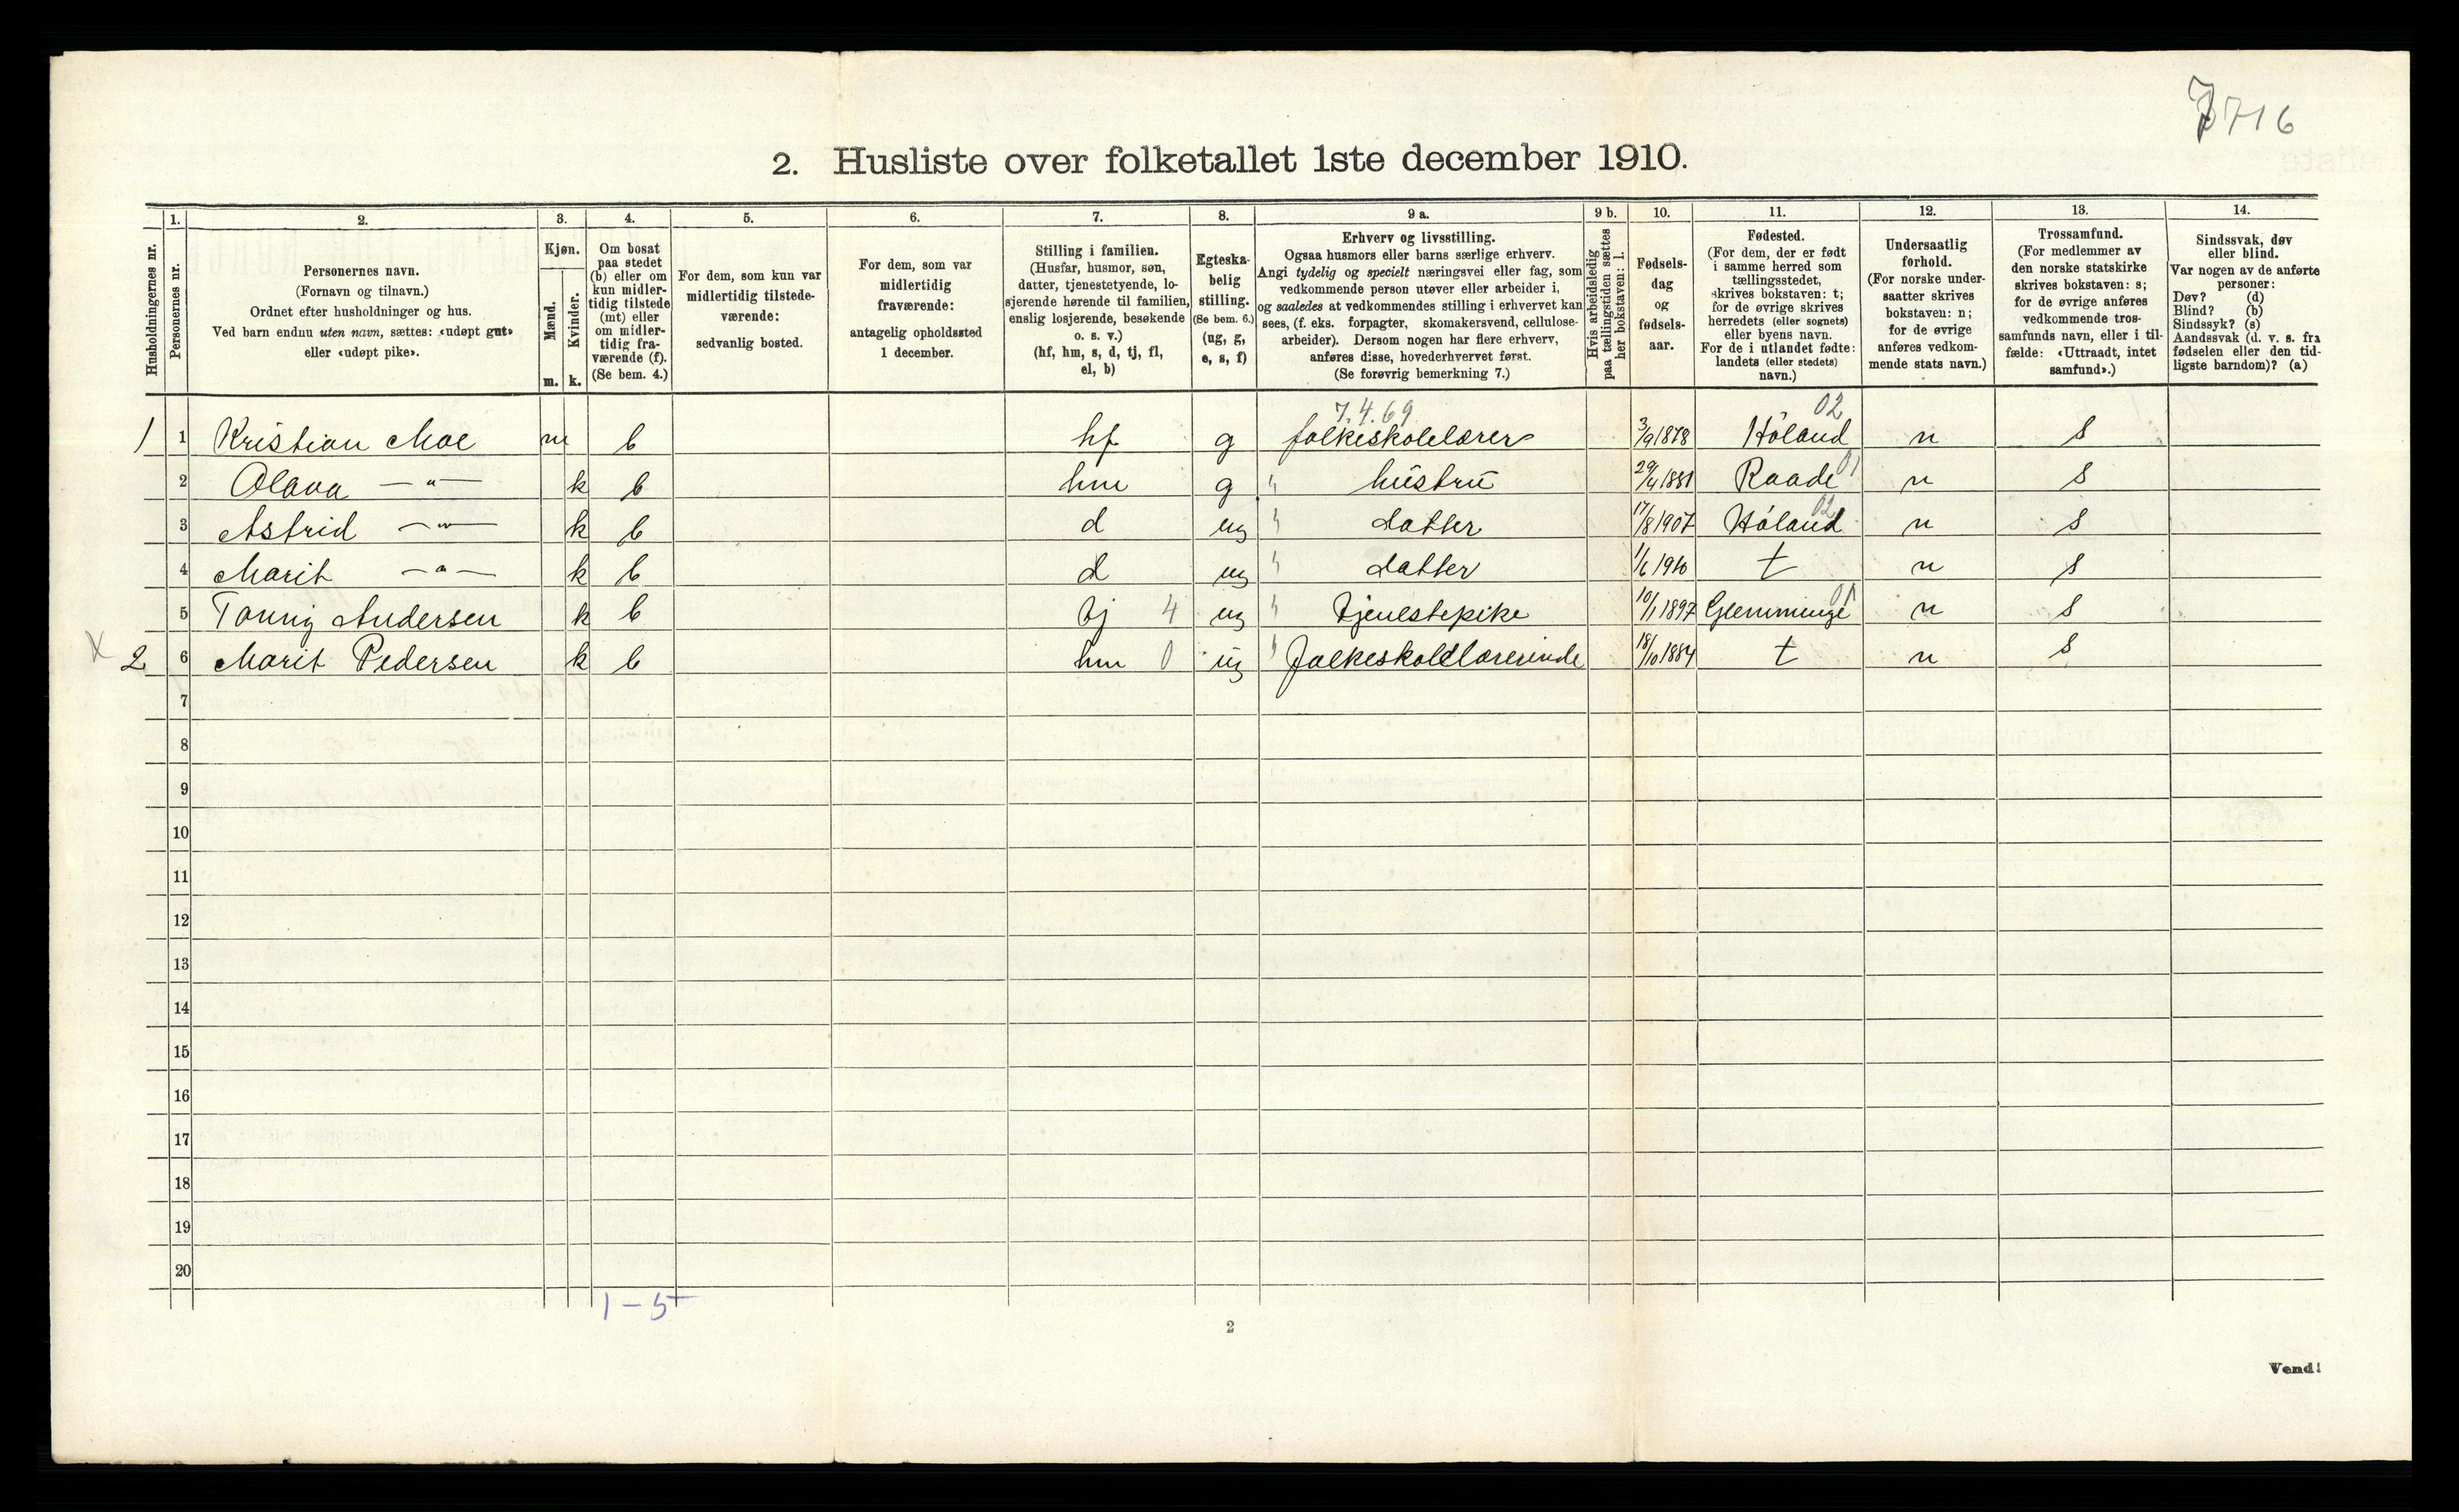 7716
2. Husliste over folketallet 1ste december 1910.
Husholdningernes nr.
1. Personernes nr.
2. Personernes navn.
(Fornavn og tilnavn.)
Ordnet efter husholdninger og hus.
Ved barn endnu uten navn, sættes: «udøpt gut»
eller «udøpt pike».
3. Kjøn.
Mænd. Kvinder.
m. k.
4. Om bosat
paa stedet
(b) eller om
kun midler-
tidig tilstede
(mt) eller
om midler-
tidig fra-
værende (f).
(Se bem. 4.)
5. For dem, som kun var
midlertidig tilstede-
værende:
sedvanlig bosted.
6. For dem, som var
midlertidig
fraværende:
antagelig opholdssted
1 december.
7. Stilling i familien.
(Husfar, husmor, søn,
datter, tjenestetyende, lo-
sjerende hørende til familien,
enslig losjerende, besøkende
o. s. v.)
(hf, hm, s, d, tj, fl,
el, b)
8. Egteska-
belig
stilling.
(Se bem. 6.)
(ug, g,
e, s, f)
9 a. Erhverv og livsstilling.
Ogsaa husmors eller barns særlige erhverv.
Angi tydelig og specielt næringsvei eller fag, som
vedkommende person utøver eller arbeider i,
og saaledes at vedkommendes stilling i erhvervet kan
sees, (f. eks. forpagter, skomakersvend, cellulose-
arbeider). Dersom nogen har flere erhverv,
anføres disse, hovederhvervet først.
(Se forøvrig bemerkning 7.)
9 b. Hvis arbeidsledig
paa tællingstiden sættes
her bokstaven: l.
10. Fødsels-
dag
og
fødsels-
aar.
11. Fødested.
(For dem, der er født
i samme herred som
tællingsstedet,
skrives bokstaven: t;
for de øvrige skrives
herredets (eller sognets)
eller byens navn.
For de i utlandet fødte:
landets (eller stedets)
navn.)
12. Undersaatlig
forhold.
(For norske under-
saatter skrives
bokstaven: n;
for de øvrige
anføres vedkom-
mende stats navn.)
13. Trossamfund.
(For medlemmer av
den norske statskirke
skrives bokstaven: s;
for de øvrige anføres
vedkommende tros-
samfunds navn, eller i til-
fælde: «Uttraadt, intet
samfund».)
14. Sindssvak, døv
eller blind.
Var nogen av de anførte
personer:
Døv? (d)
Blind? (b)
Sindssyk? (s)
Aandssvak (d. v. s. fra
fødselen eller den tid-
ligste barndom)? (a)
7.4.69 02
1 1 Kristian Moe m b hf g folkeskolelærer 3/9 1878 Höland n s
2 Olava —"— k b hm g " hustru 29/4 1881 Raade 01 n s
3 Astrid —"— k b d ug " datter 17/8 1907 Höland 02 n s
4 Marit —"— k b d ug " datter 1/6 1910 t n s
5 Tonny Andersen k b tj 4 ug " tjenestepike 10/1 1897 Glemminge 01 n s
x 2 6 Marit Pedersen k b hm 0 ug " folkeskolelærerinde 18/10 1884 t n s
7
8
9
10
11
12
13
14
15
16
17
18
19
20
1 – 5
2
Vend!